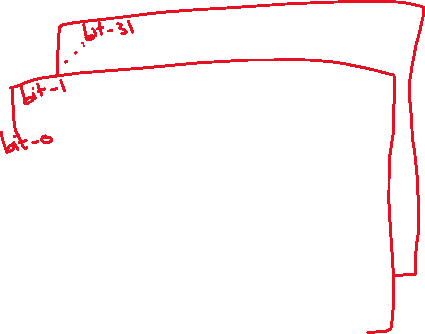 bit-31
bit-1
bit-0